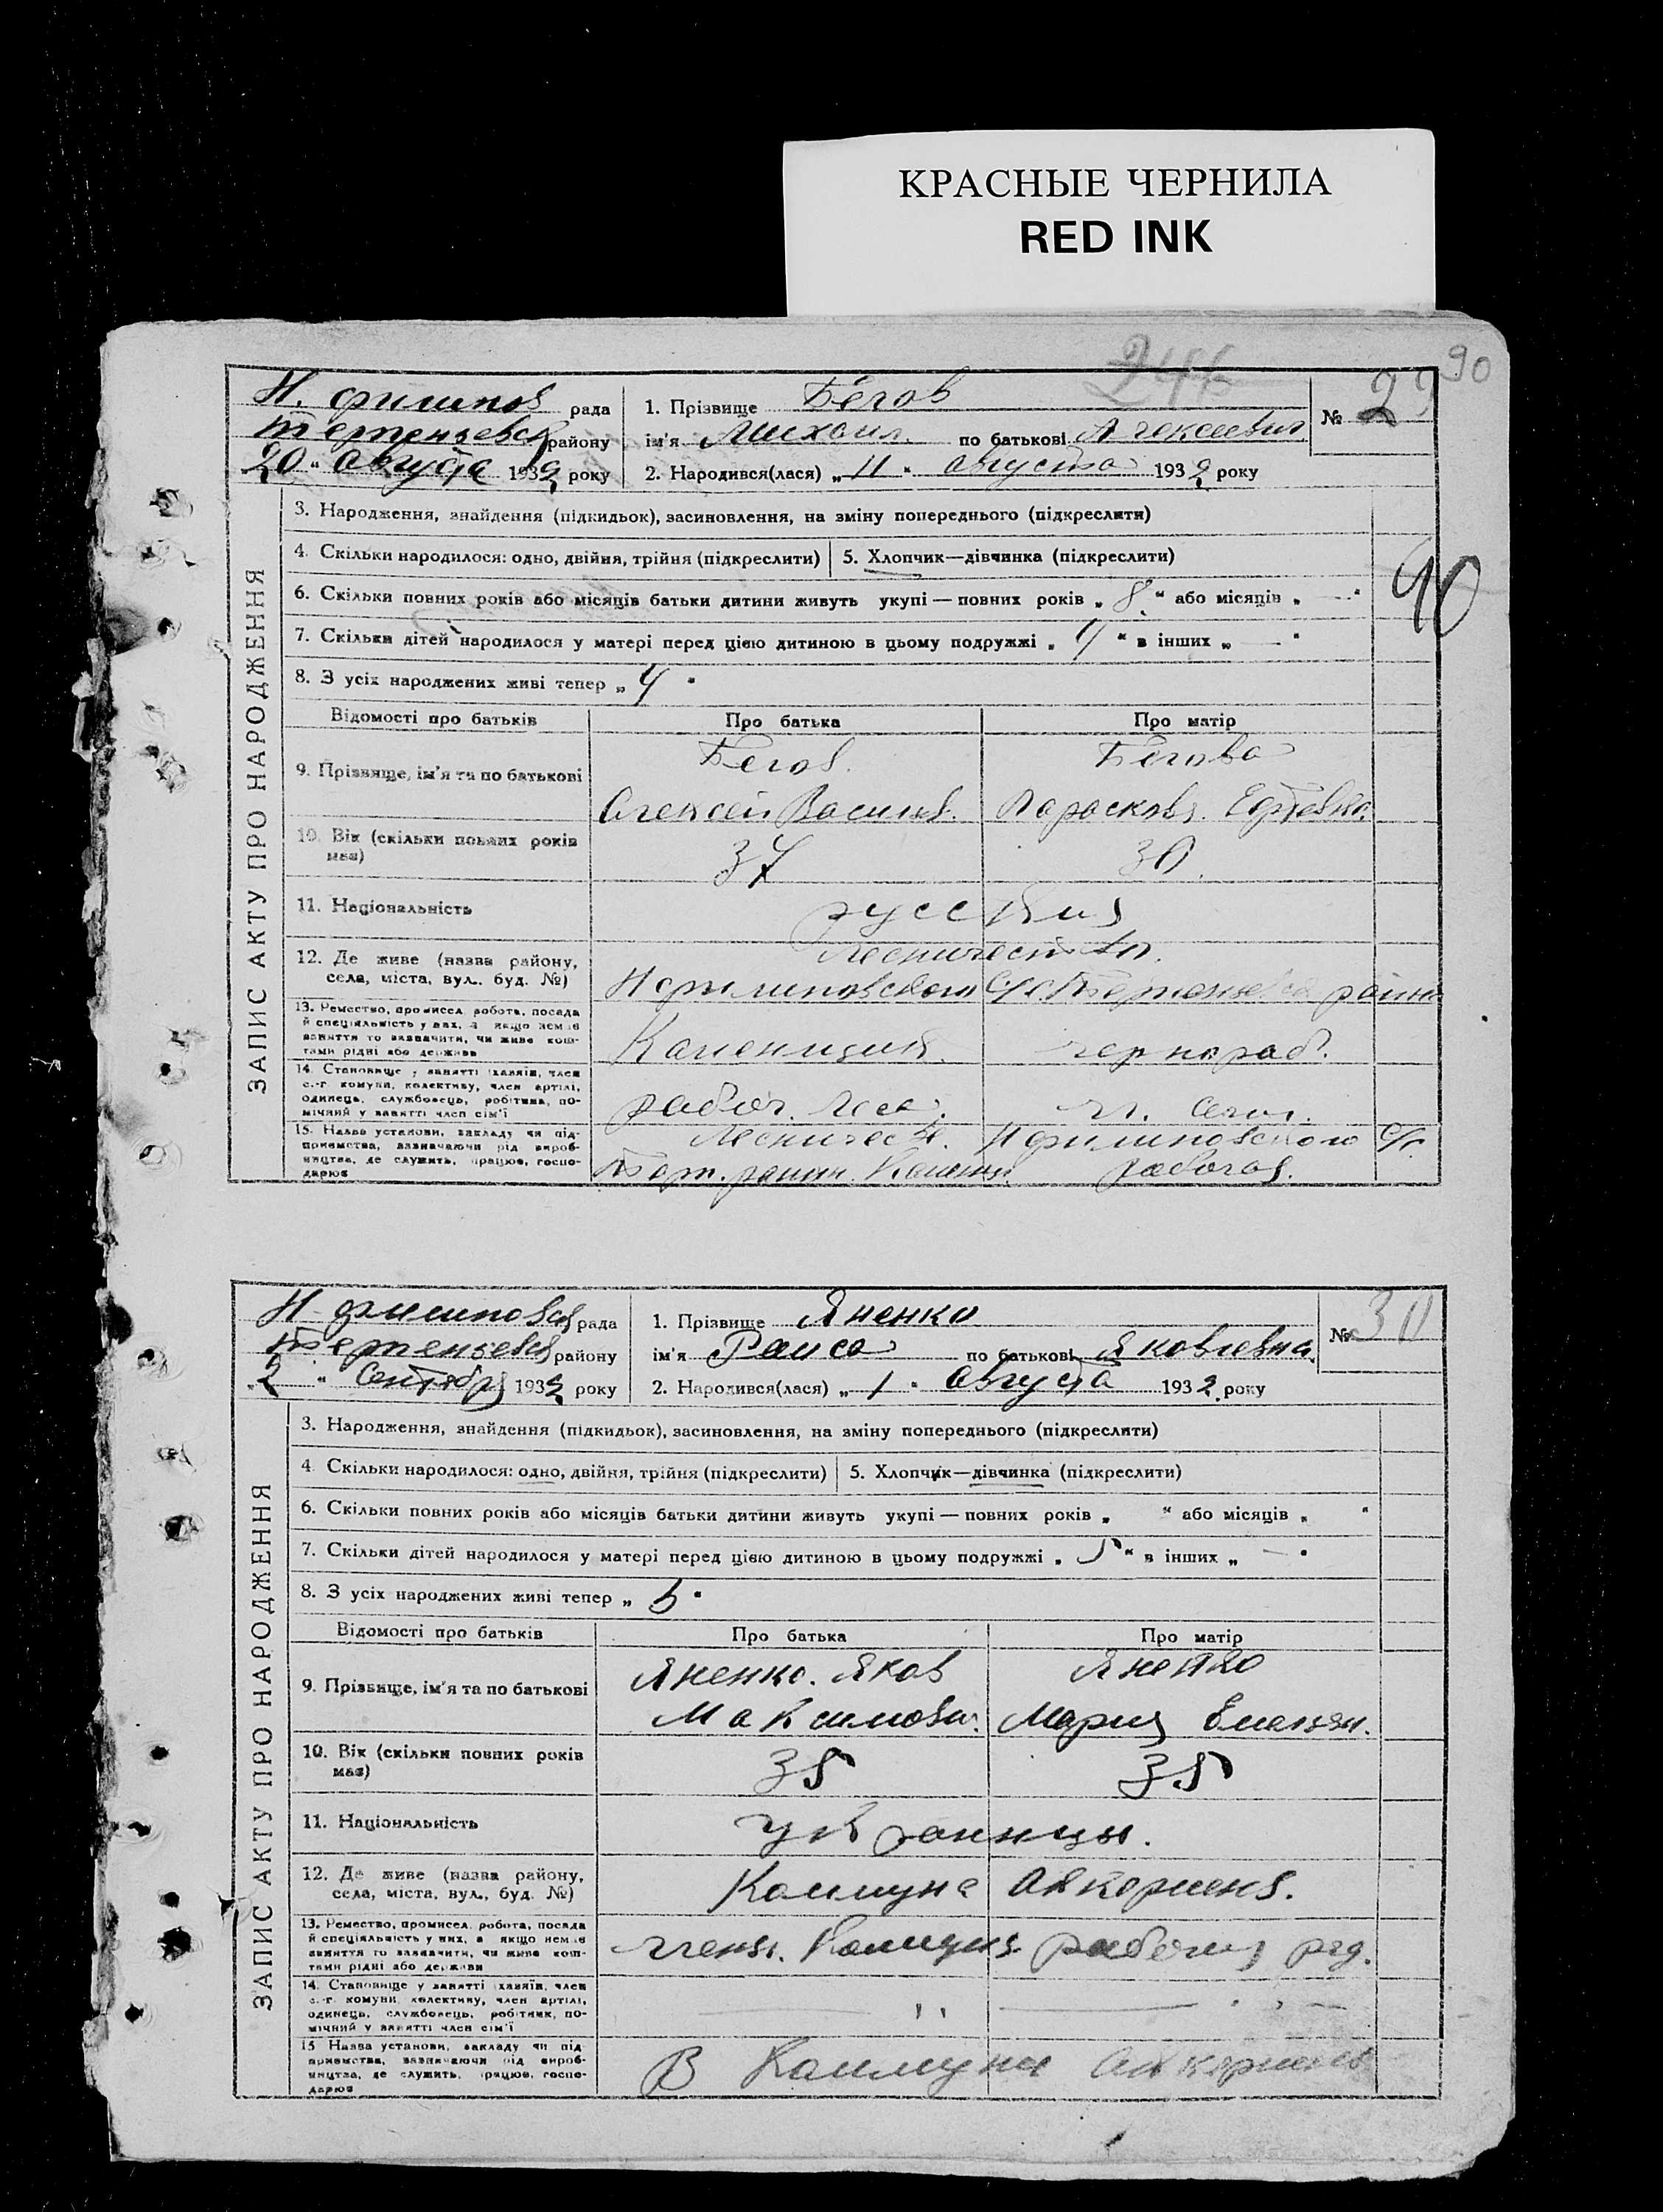 КРАСНЫЕ ЧЕРНИЛА
RED INK
90
244
Н. филипов рада
района
20 " августа 1932 року
1. Прізвище Бегов
ім'я Михаил по батькові Алексеевич
2. Народився(лася) „ 11 " августа 1932 року
№ 29
ЗАПИС АКТУ ПРО НАРОДЖЕННЯ
3. Народження, знайдення (підкидьок), засиновлення, на зміну попереднього (підкреслити)
4. Скільки народилося: одно, двійня, трійня (підкреслити)
5. Хлопчик—дівчинка (підкреслити)
6. Скільки повних років або місяців батьки дитини живуть укупі — повних років „ 8 " або місяців „ — "
90
7. Скільки дітей народилося у матері перед цією дитиною в цьому подружжі „ 4 " в інших „ — "
8. З усіх народжених живі тепер „ 4 "
Відомості про батьків
Про батька
Про матір
9. Прізвище, ім'я та по батькові
Бегов
Алексей Васильев.
Бегова
Парасковья
10. Вік (скільки повних років має)
37
30
11. Національність
русские
12. Де живе (назва району, села, міста, вул., буд. №)
Лесничество
Нфилиповского С/с района
13. Ремество, промисел, робота, посада й спеціяльність у них, а якщо немає заняття то зазначити, чи живе коштами рідні або держави
Каменщик
чернораб.
14. Становище у занятті хазяїн, член с.-г. комуни, колективу, член артілі, одинець, службовець, робітник, помічний у занятті член сім'ї
рабоч.
15. Назва установи, закладу чи підприємства, зазначаючи рід виробництва, де служить, працює, господарює
Лесничеств. Нфилиповского С/с.
района Каменщ. рабочая.
Н-филиповск рада
району
„ 2 " Сентября 1932 року
1. Прізвище Яненко
ім'я Раиса по батькові Яковлевна
2. Народився(лася) „ 1 " Августа 1932 року
№ 30
ЗАПИС АКТУ ПРО НАРОДЖЕННЯ
3. Народження, знайдення (підкидьок), засиновлення, на зміну попереднього (підкреслити)
4. Скільки народилося: одно, двійня, трійня (підкреслити)
5. Хлопчик—дівчинка (підкреслити)
6. Скільки повних років або місяців батьки дитини живуть укупі — повних років „ " або місяців „ "
7. Скільки дітей народилося у матері перед цією дитиною в цьому подружжі „ 5 " в інших „ — "
8. З усіх народжених живі тепер „ 5 "
Відомості про батьків
Про батька
Про матір
9. Прізвище, ім'я та по батькові
Яненко. Яков
Максимович.
Яненко
Мария Емельян.
10. Вік (скільки повних років має)
35
35
11. Національність
Украинцы.
12. Де живе (назва району, села, міста, вул., буд. №)
Коммуна
13. Ремество, промисел, робота, посада й спеціяльність у них, а якщо немає заняття то зазначити, чи живе коштами рідні або держави
член. Коммуны рабочий ряд.
14. Становище у занятті хазяїн, член с.-г. комуни, колективу, член артілі, одинець, службовець, робітник, помічний у занятті член сім'ї
— " — " —
15. Назва установи, закладу чи підприємства, зазначаючи рід виробництва, де служить, працює, господарює
В Коммуне